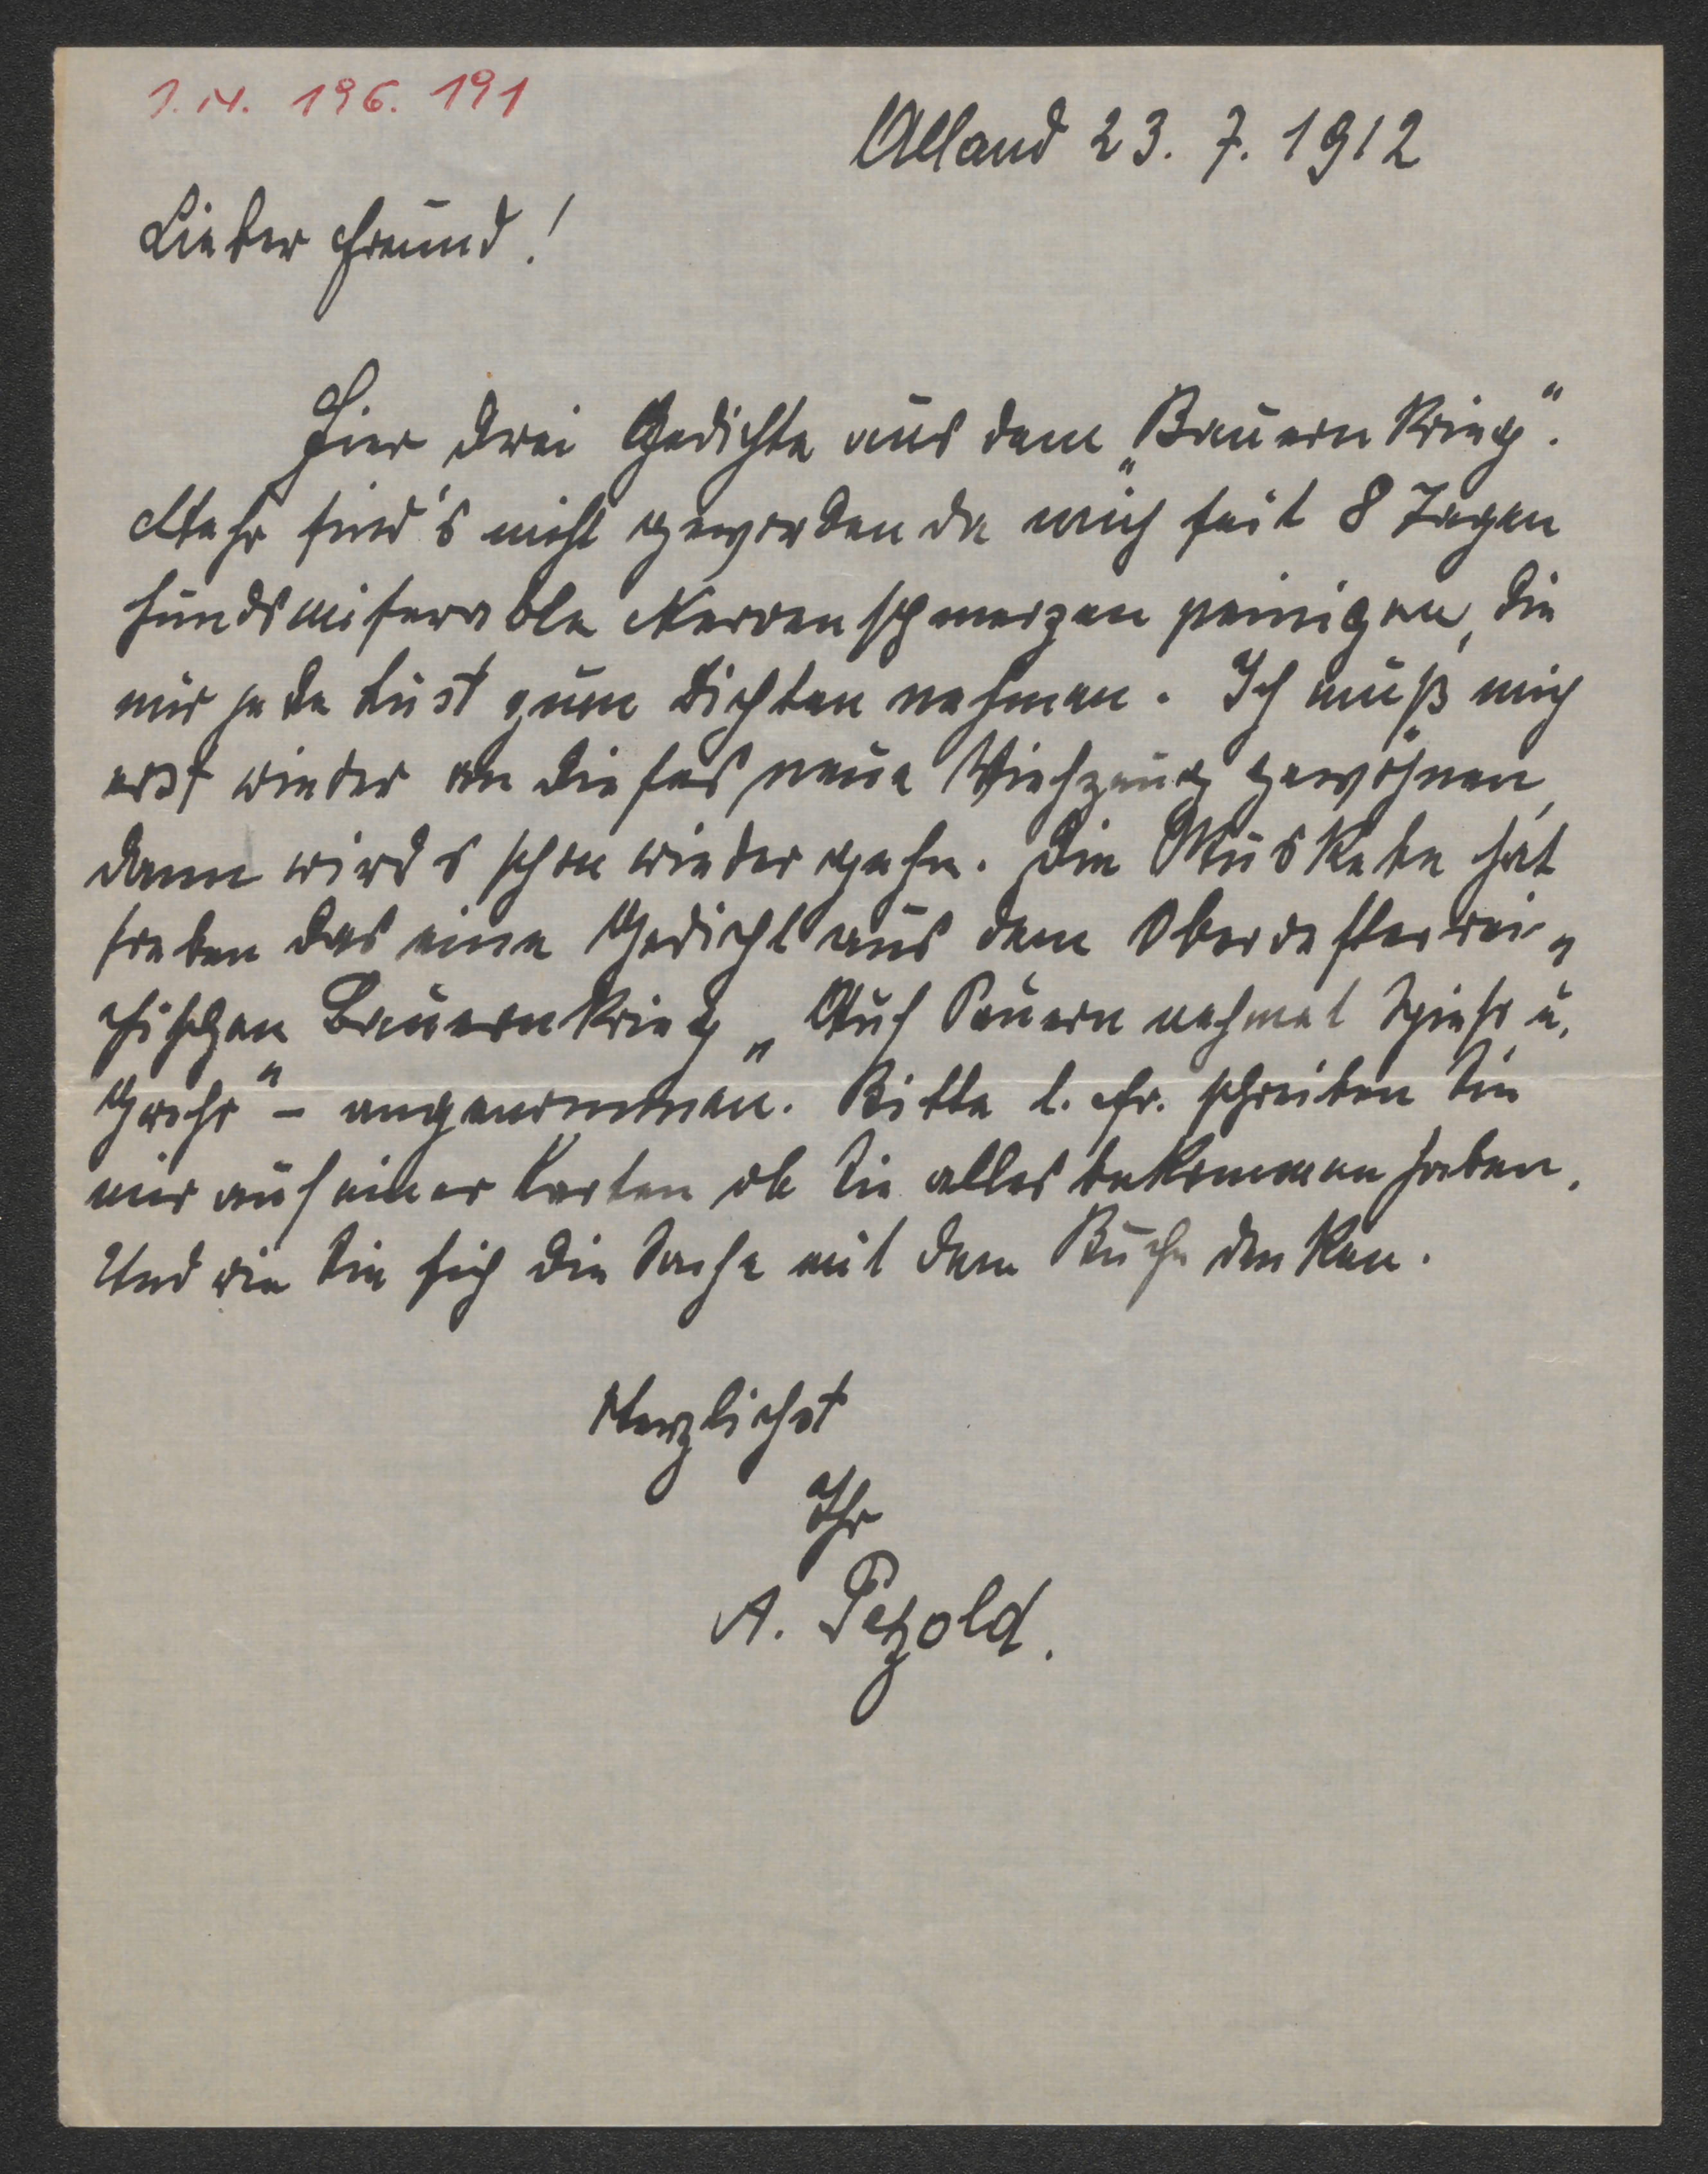 I.N. 196.191
Alland 23. 7. 1912
Lieber Freund!
Hier drei Gedichte aus dem „Bauernkrieg“.
Mehr sind's nicht geworden da mich seit 8 Tagen
hundsmiserable Nervenschmerzen peinigen, die
mir jede Lust zum Dichten nehmen. Ich muß mich
erst wieder an dieses neue Viehzeug gewöhnen,
dann wirds schon wieder gehn. Die Muskete hat
soeben das eine Gedicht aus dem Oberoesterrei-
chischen Bauernkrieg „Auf Pauern nehmet Spiess u.
Gwehr“ – angenommen. Bitte l. Fr. schreiben Sie
mir auf einer Karten ob Sie alles bekommen haben.
Und wie Sie sich die Sache mit dem Buche denken.
Herzlichst
Ihr
A. Petzold.